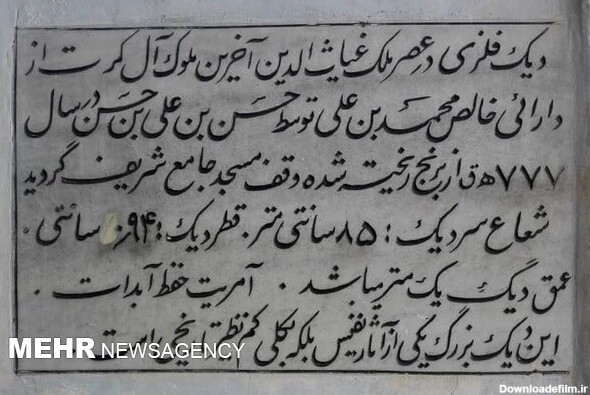 دیک فلزی در عصر ملک غیاث الدین آخرین ملوک آل کرت از
دارائی خالص محمد بن علی توسط حسن بن علی بن حسن در سال
۷۷۷ ه‍ ق از برنج ریخته شده وقف مسجد جامع شریف گردید
شعاع سر دیک : ۸۵ سانتی متر . قطر دیک : ۹۴ سانتی .
عمق دیگ یک متر میباشد . آمریت حفظ آبدات .
این دیک بزرگ یکی از آثار نفیس بلکه بکلی کم نظیر تاریخی است
MEHR NEWSAGENCY
Downloadefilm.ir